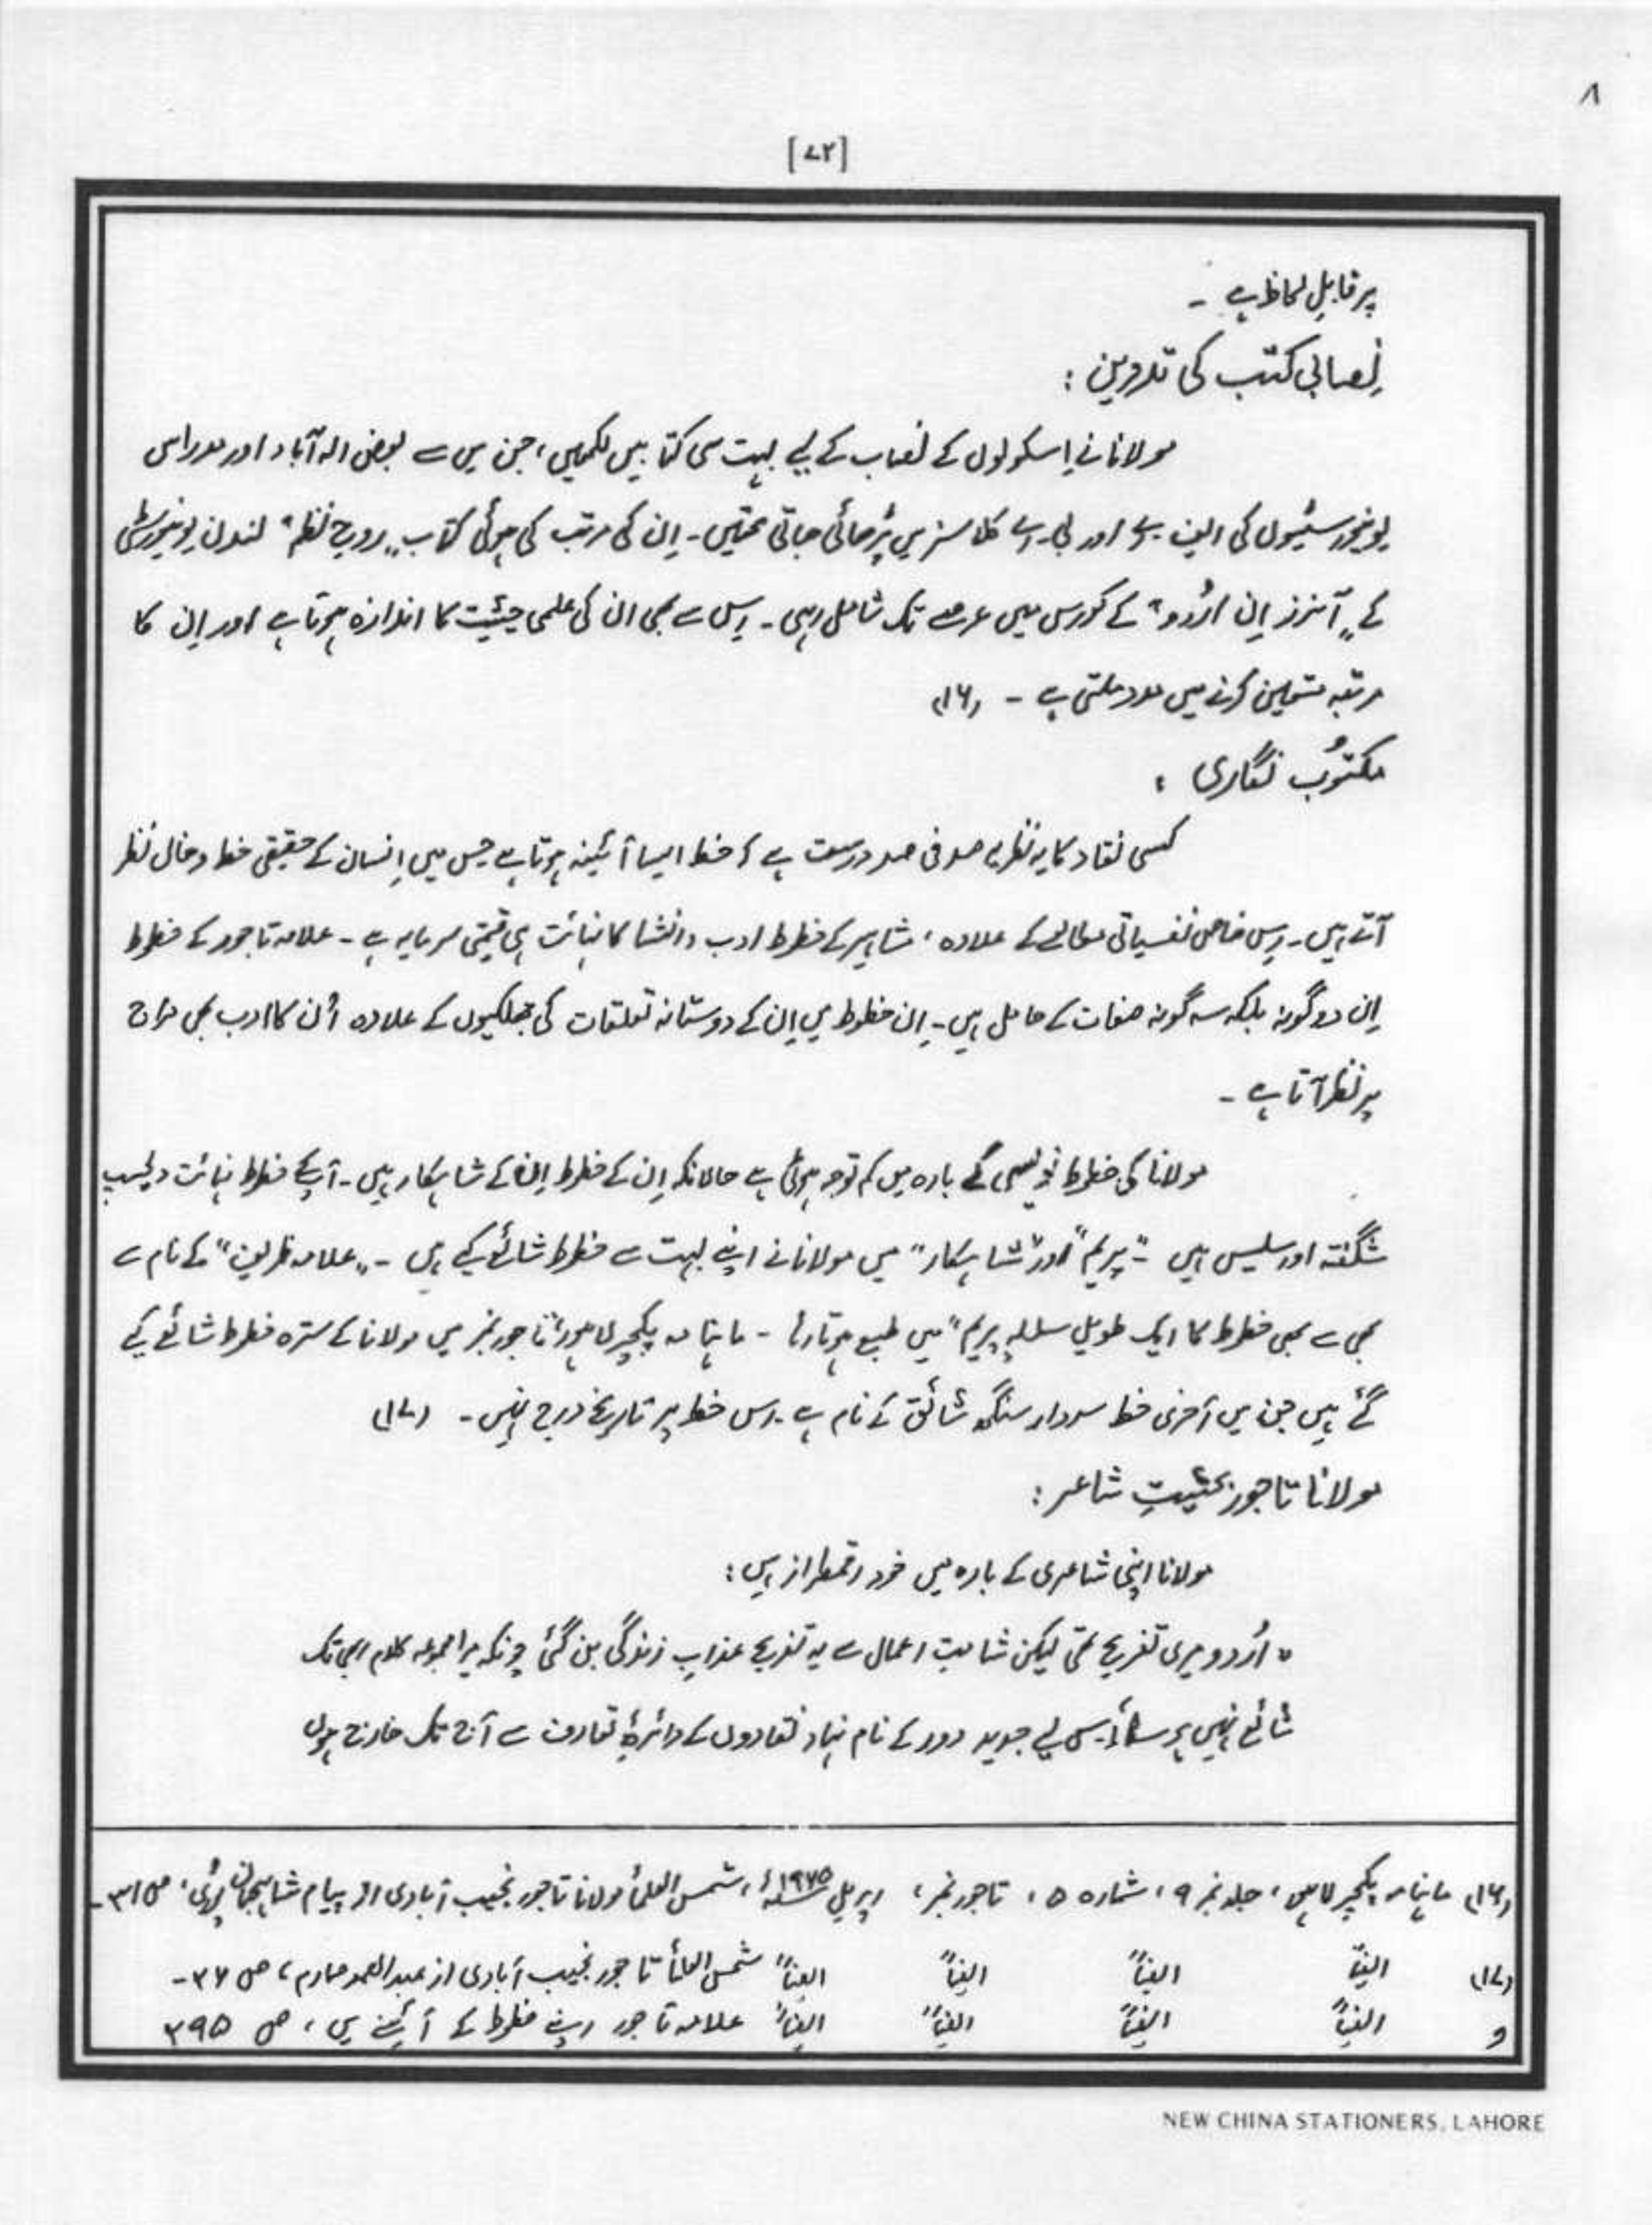 ۸
[۷۲]
پر قابلِ لحاظ ہے ۔
نِصابی کتب کی تدوین :
مولانا نے اِسکولوں کے نصاب کے لیے بہت سی کتابیں لکھیں، جن میں سے بعض الہ آباد اور مدراس
یونیورسٹیوں کی ایف اے اور بی ۔ اے کلاسز میں پڑھائی جاتی تھیں ۔ اِن کی مرتب کی ہوئی کتاب „روحِ نظم" لندن یونیورسٹی
کے „آنرز اِن اُردو" کے کورس میں عرصے تک شامل رہی ۔ اِس سے بھی ان کی علمی حیثیت کا اندازہ ہوتا ہے اور اِن کا
مرتبہ متعین کرنے میں مدد ملتی ہے ۔ (۱۶)
مکتوُب نگاری :
کسی نقاد کا یہ نظریہ صد فی صد درست ہے کہ خط ایسا آئینہ ہوتا ہے جس میں اِنسان کے حقیقی خط و خال نظر
آتے ہیں ۔ اِس خاص نفسیاتی مطالعے کے علاوہ ، مشاہیر کے خطوط ادب و انشا کا نہائت ہی قیمتی سرمایہ ہے ۔ علامہ تاجور کے خطوط
اِن دو گونہ بلکہ سہ گونہ صفات کے حامل ہیں ۔ اِن خطوط میں اِن کے دوستانہ تعلقات کی جھلکیوں کے علاوہ اُن کا ادب بھی
پر نظر آتا ہے ۔
مولانا کی خطوط نویسی کے بارہ میں کم توجہ ہوئی ہے حالانکہ اِن کے خطوط اِن کے شاہکار ہیں ۔ آپ کے خطوط نہائت دلچسپ
شگفتہ اور سلیس ہیں ۔ "پریم" اور "شاہکار" میں مولانا نے اپنے بہت سے خطوط شائع کیے ہیں ۔ „علامہ ظریف" کے نام سے
بھی خطوط کا ایک طویل سلسلہ „پریم" میں طبع ہوتا رہا ۔ ماہنامہ پکچر لاہور تاجور نمبر میں مولانا کے سترہ خطوط شائع کیے
گئے ہیں جن میں آخری خط سردار سنگھ شائق کے نام ہے ۔ اِس خط پر تاریخ درج نہیں ۔ (۱۷)
مولانا تاجور بحثیتِ شاعر :
مولانا اپنی شاعری کے بارہ میں خود رقمطراز ہیں :
" اُردو میری تفریح تھی لیکن شامتِ اعمال سے یہ تفریح عذابِ زندگی بن گئی چونکہ میرا مجموعہ کلام ابھی تک
شائع نہیں ہو سکا اِس لیے جدید دور کے نام نہاد نقادوں کے دائرۂ تعارف سے آج تک خارج ہوں
(۱۶) ماہنامہ پکچر لاہور ، جلد نمبر ۹ ، شمارہ ۵ ، تاجور نمبر ، اپریل ۱۹۷۵ء ، شمس العلمأ مولانا تاجور نجیب آبادی از پیام شاہجہان پوری ، ص ۳۱ ۔
(۱۷) ایضاً ایضاً ایضاً ایضاً شمس العلمأ تاجور نجیب آبادی از عبدالصمد صارم ، ص ۳۶ ۔
و ایضاً ایضاً ایضاً ایضاً علامہ تاجور اپنے خطوط کے آئینے میں ، ص ۳۹۵
NEW CHINA STATIONERS, LAHORE